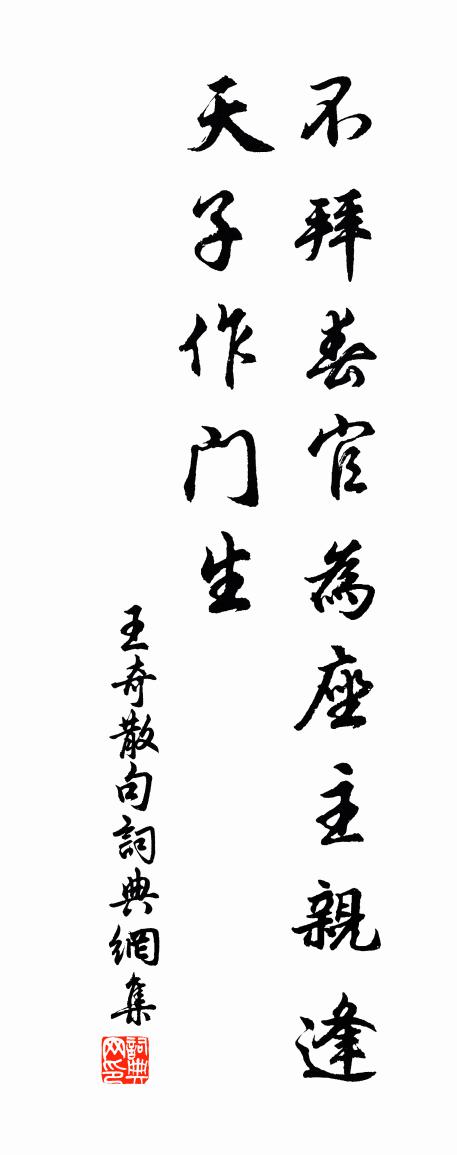 不拜春官為座主親逢
天子作門生
王奇散句詞典網集
詞典网印